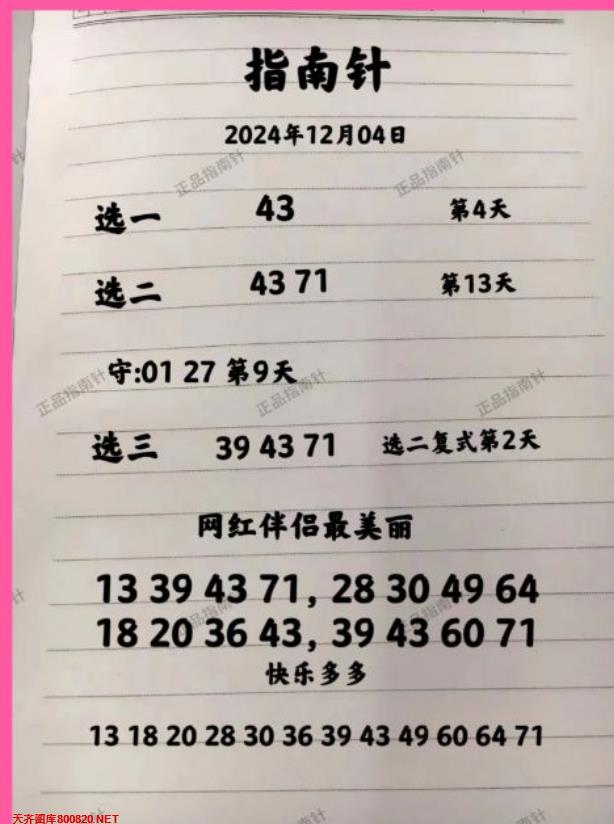 指南针
2024年12月04日
正品指南针 正品指南针
选一 43 第4天
选二 43 71 第13天
守:01 27 第9天
正品指南针 正品指南针 正品指南针
选三 39 43 71 选二复式第2天
网红伴侣最美丽
13 39 43 71, 28 30 49 64
18 20 36 43, 39 43 60 71
快乐多多
13 18 20 28 30 36 39 43 49 60 64 71
天齐图库800820.NET